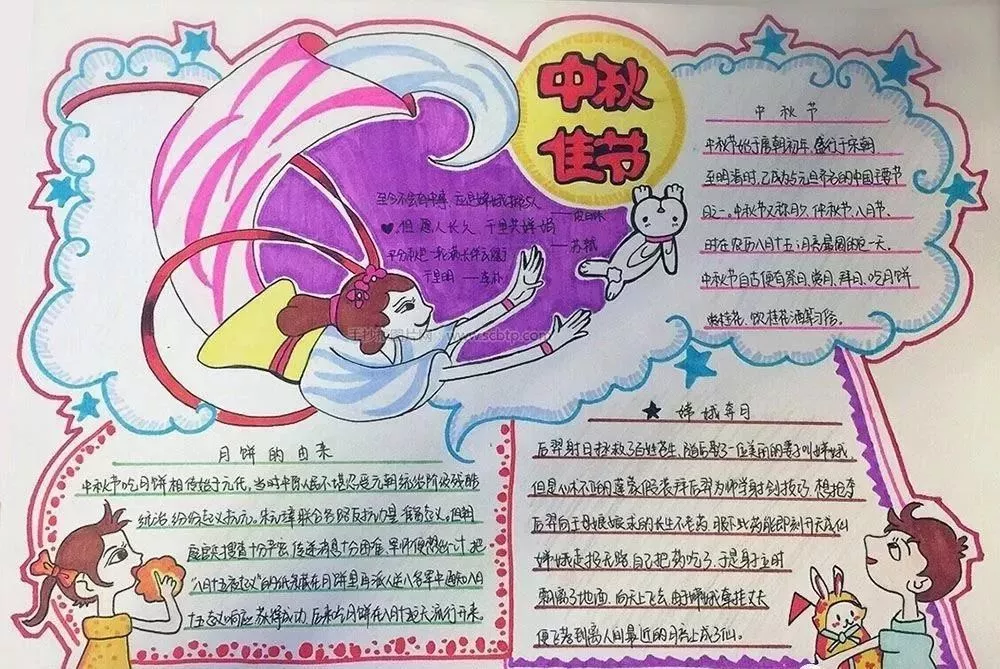 中秋
佳节
中秋节
中秋节始于唐朝初年,盛行于宋朝,
至明清时,已成为与元旦齐名的中国主要节
日之一。中秋节又称月夕、仲秋节、八月节。
时在农历八月十五,月亮最圆的一天。
中秋节自古便有祭月、赏月、拜月、吃月饼
赏桂花、饮桂花酒等习俗。
至今不会天中事,应是嫦娥掷与人 ——皮日休
但愿人长久 千里共婵娟
——苏轼
平分秋色一轮满 长伴云衢
千里明 ——李朴
手抄报图片网 www.scbtp.com
月饼的由来
中秋节吃月饼相传始于元代,当时中原人民不堪忍受元朝统治阶级残酷
统治 纷纷起义抗元。朱元璋联合各路反抗力量准备起义,但朝
庭官兵搜查十分严密,传递消息十分困难,军师便想出一计,把
"八月十五夜起义"的纸条藏在月饼里再派人送入各军中通知八月
十五起义响应 获得成功,后来吃月饼在八月十五大流行开来。
嫦娥奔月
后羿射日拯救了百姓苍生,随后娶了一位美丽的妻子叫嫦娥,
但是心术不正的蓬蒙假装拜后羿为师学射剑技巧,想抢夺
后羿向王母娘娘求的长生不老药,服下此药能即刻升天成仙
嫦娥走投无路,自己把药吃了,于是身立时
飘离了地面,向天上飞去,由于嫦娥牵挂丈夫
便飞落到离人间最近的月亮上成了仙。